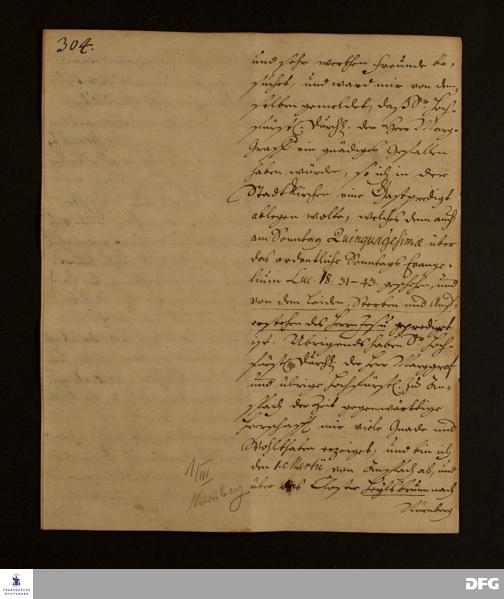 304.
und sehr werthen Freunde be,
suchet, und ward mir von dem,
selben gemeldet, daß Sr. Hoch,
fürstl. Durchl. der Herr Marg,
Graff ein gnädiges Gefallen
haben würden, so ich in der
Stadt Kirchen eine Gastpredigt
ablegen wolte, welches denn auch
am Sonntag Quinquagesimæ über
das ordentliche Sonntags Evange,
lium Luc. 18. 31-43. geschehen, und
von dem Leiden, Sterben und Auf,
erstehen des Herrn Jesu gepredigt
ist. Übrigens haben Sr. Hoch,
fürstl. Durchl. der Herr Marggraf
und übrige Hochfürstl. zu An,
spach der Zeit gegenwärtige
Herrschafft mir viele Gnade und
Wohlthaten erzeiget, und bin ich
den 1. Martii von Anspach ab, und
über das Closter Heylsbrunn nach
Nürnberg
1/III
Nürnberg
FRANCKESCHE
STIFTUNGEN
DFG